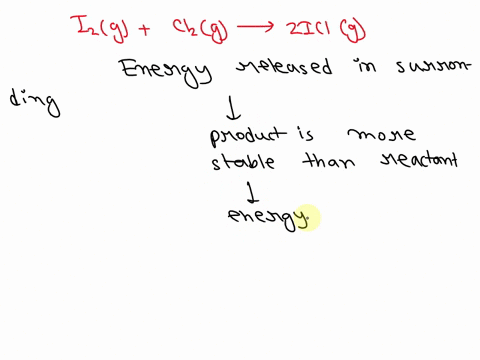 I₂(g) + Cl₂(g) ⟶ 2ICl (g)
Energy released in surron-
ding
↓
product is more
stable than reactant
↓
energy